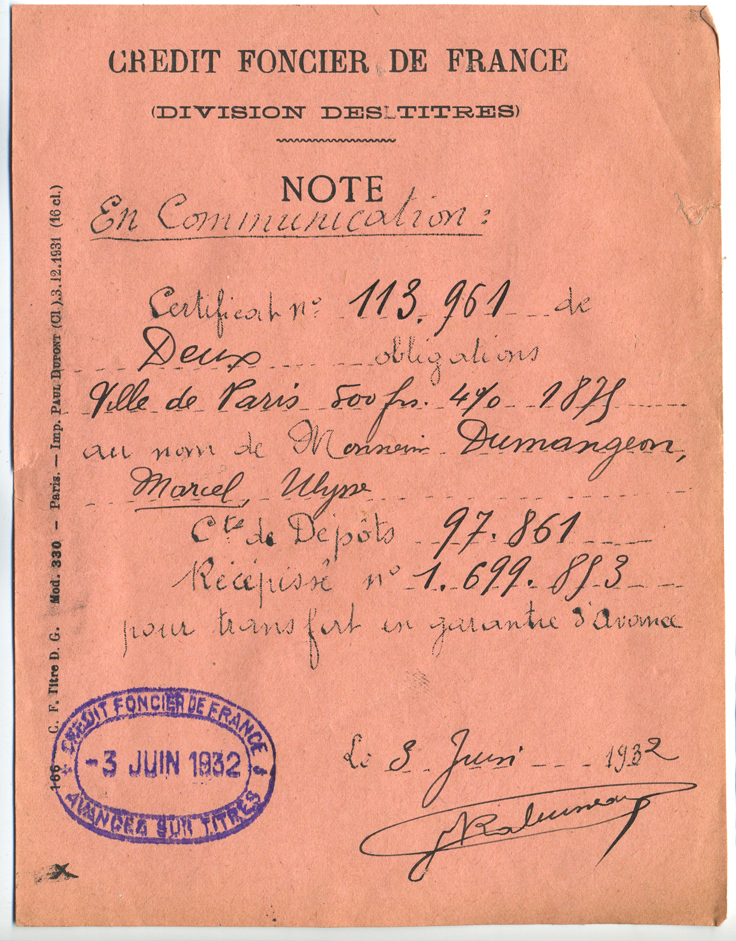 CREDIT FONCIER DE FRANCE
(DIVISION DES TITRES)
NOTE
En Communication :
Certificat n° 113.961 de
Deux obligations
Ville de Paris 500 frs. 4% 1875
au nom de Monsieur Dumangeon,
Marcel, Ulysse
Cte de Depôts 97.861
Récépissé n° 1.699.853
pour transfert en garantie d'Avance
Le 3 Juin 1932
CREDIT FONCIER DE FRANCE
-3 JUIN 1932
AVANCES SUR TITRES
166 C. F. Titre D. G. Mod. 330 — Paris. — Imp. PAUL DUPONT (Cl.).3.12.1931 (16 cl.)